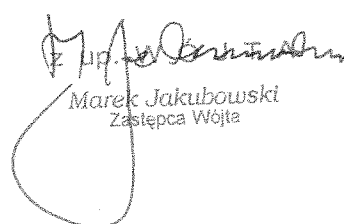 z up. WÓJTA
Marek Jakubowski
Zastępca Wójta